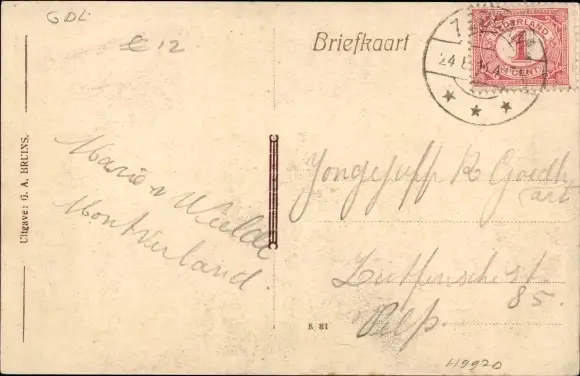 GDL
€ 12
Briefkaart
NEDERLAND
1
CENT
24
Uitgave: G. A. BRUINS.
Marie v Wielde
Montferland.
Jongejuff R Goedh
art
Zutfensche st.
85.
Velp.
K 81
45920